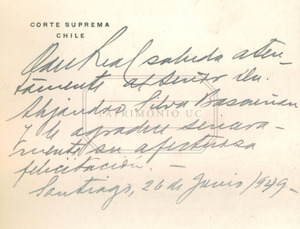 CORTE SUPREMA
CHILE
Real saluda aten-
tamente al señor Dn.
Alejandro Silva Bascuñan
y le agradece sincera-
mente su afectuosa
felicitación. —
Santiago, 26 de Junio 1949 —
PATRIMONIO UC